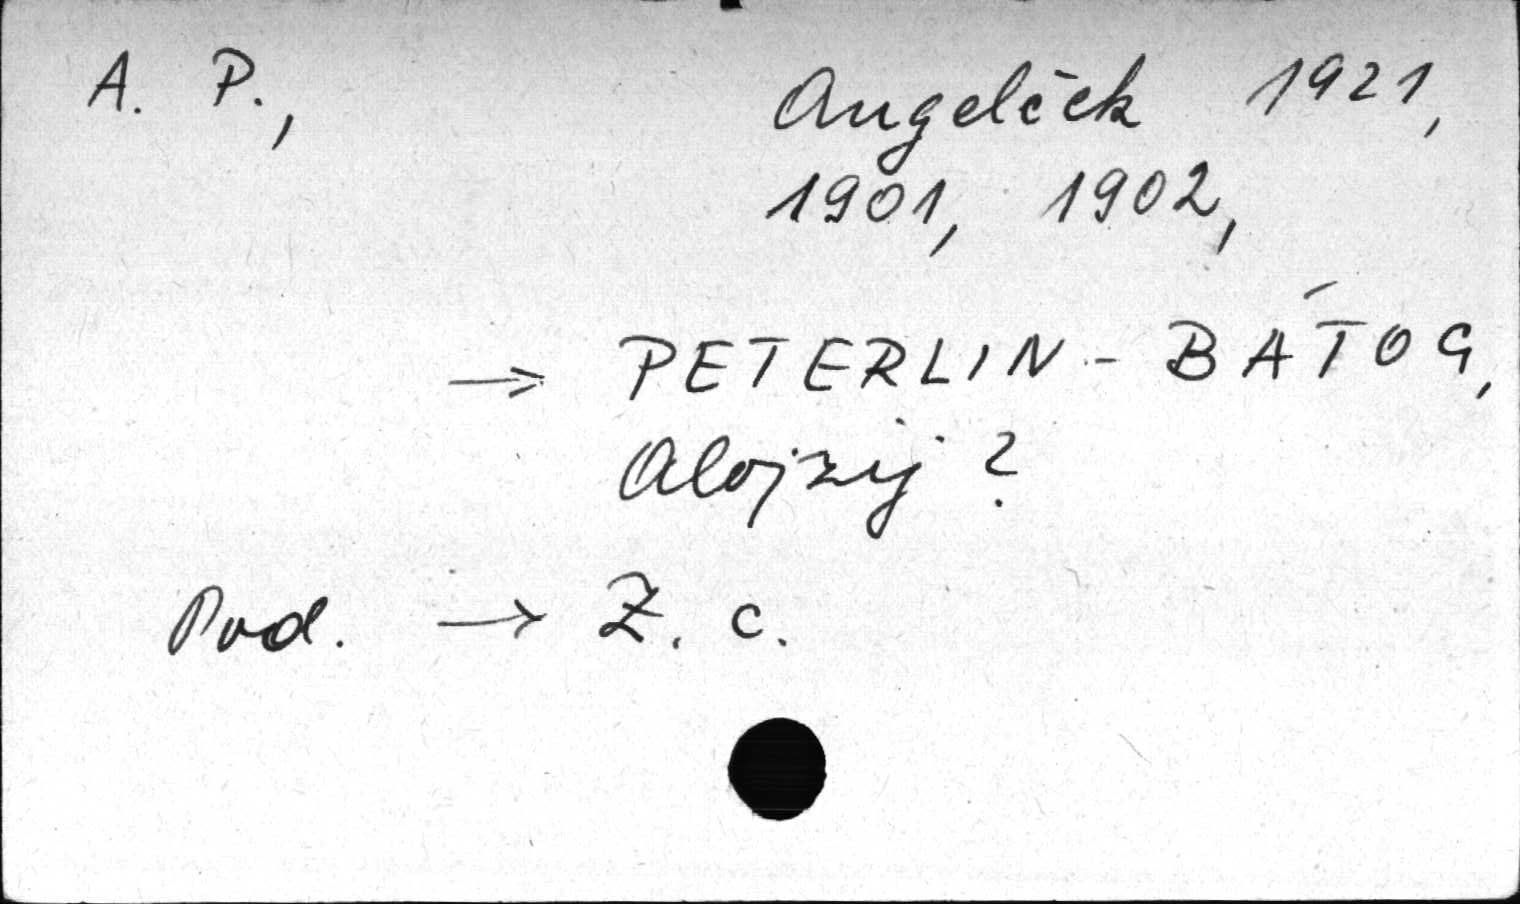 A. P., Angelček 1921,
1901, 1902,
→ PETERLIN-BATOG,
Alojzij?
Pod. → Z. c.